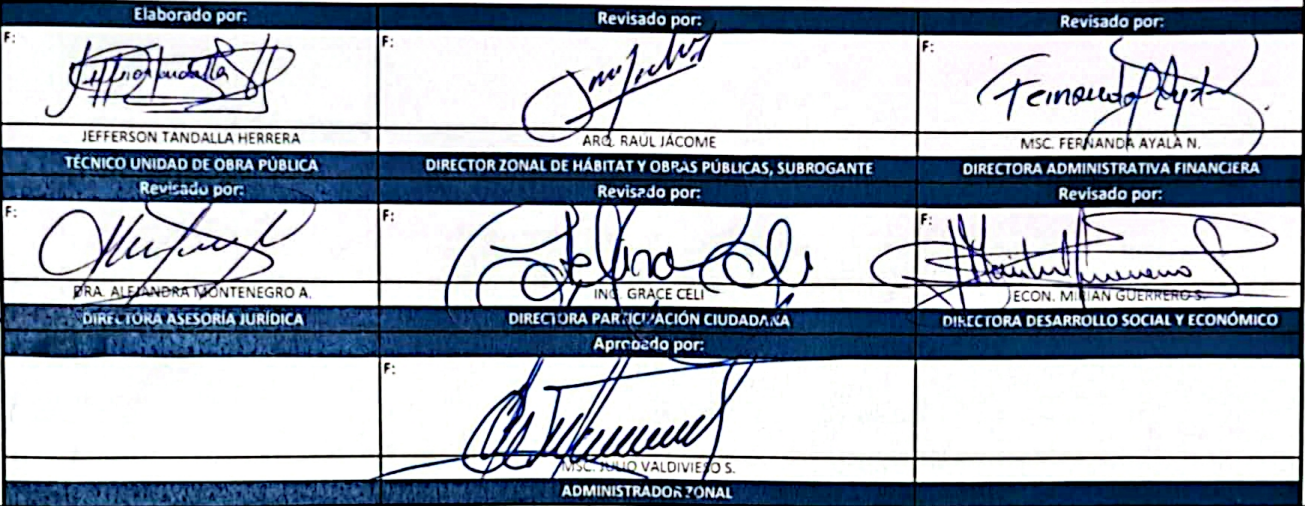 Elaborado por: Revisado por: Revisado por:
F: F: F:
JEFFERSON TANDALLA HERRERA ARQ. RAUL JÁCOME MSC. FERNANDA AYALA N.
TÉCNICO UNIDAD DE OBRA PÚBLICA DIRECTOR ZONAL DE HÁBITAT Y OBRAS PÚBLICAS, SUBROGANTE DIRECTORA ADMINISTRATIVA FINANCIERA
Revisado por: Revisado por: Revisado por:
F: F: F:
DRA. ALEJANDRA MONTENEGRO A. ING. GRACE CELI ECON. MIRIAN GUERRERO S.
DIRECTORA ASESORÍA JURÍDICA DIRECTORA PARTICIPACIÓN CIUDADANA DIRECTORA DESARROLLO SOCIAL Y ECONÓMICO
Aprobado por:
F:
MSC. JULIO VALDIVIESO S.
ADMINISTRADOR ZONAL